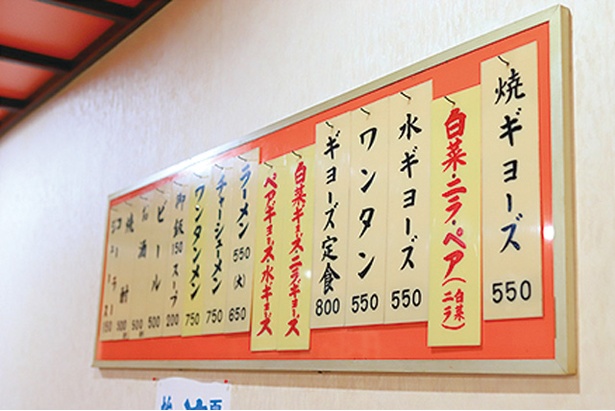 焼ギョーズ 550
白菜・ニラ・ペア(白菜ニラ)
水ギョーズ 550
ワンタン 550
ギョーズ定食 800
白菜ギョーズ・ニラギョーズ
ペアギョーズ・水ギョーズ
ラーメン 550 (大) 650
チャーシューメン 750
ワンタンメン 750
御飯 150 スープ 200
ビール 500
酒 500
焼酎 500
コーラ
ジュース 150